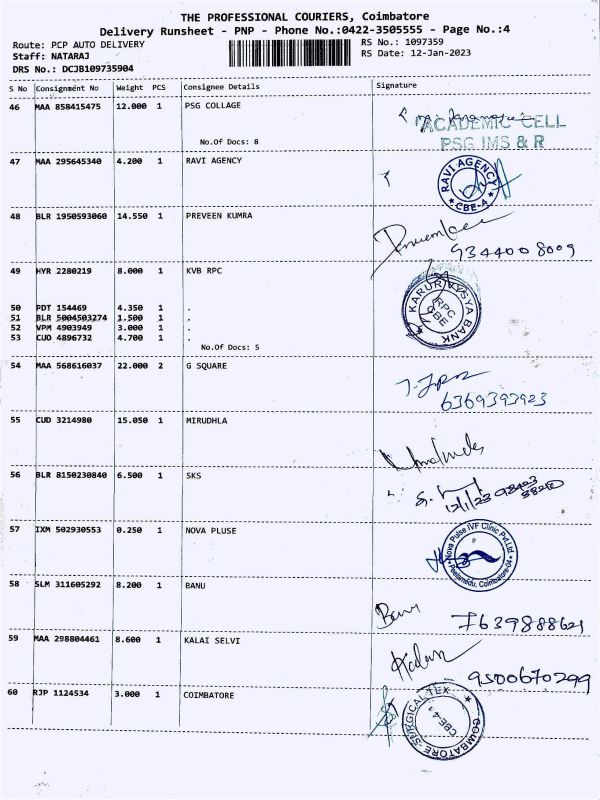 THE PROFESSIONAL COURIERS, Coimbatore
Delivery Runsheet - PNP - Phone No.:0422-3505555 - Page No.:4
Route: PCP AUTO DELIVERY
RS No.: 1097359
Staff: NATARAJ
RS Date: 12-Jan-2023
DRS No.: DCJB109735904
S No Consignment No Weight PCS Consignee Details Signature
46 MAA 858415475 12.000 1 PSG COLLAGE
ACADEMIC CELL
PSG IMS & R
No.Of Docs: 8
47 MAA 295645340 4.200 1 RAVI AGENCY
RAVI AGENCY
CBE-4
48 BLR 1950593060 14.550 1 PREVEEN KUMRA
9344008009
49 HYR 2280219 8.000 1 KVB RPC
KARUR VYSYA BANK
RPC
CBE
50 PDT 154469 4.350 1 .
51 BLR 5004503274 1.500 1 .
52 VPM 4903949 3.000 1 .
53 CUD 4896732 4.700 1 .
No.Of Docs: 5
54 MAA 568616037 22.000 2 G SQUARE
6369393923
55 CUD 3214980 15.050 1 MIRUDHLA
56 BLR 8150230840 6.500 1 SKS
12/1/23
57 IXM 502930553 0.250 1 NOVA PLUSE
Nova Pulse IVF Clinic Pvt.Ltd.
Peelamedu, Coimbatore-04
58 SLM 311605292 8.200 1 BANU
Banu 7639888621
59 MAA 298804461 8.600 1 KALAI SELVI
9500670299
60 RJP 1124534 3.000 1 COIMBATORE
COIMBATORE SURGICAL TEX
CBE-4